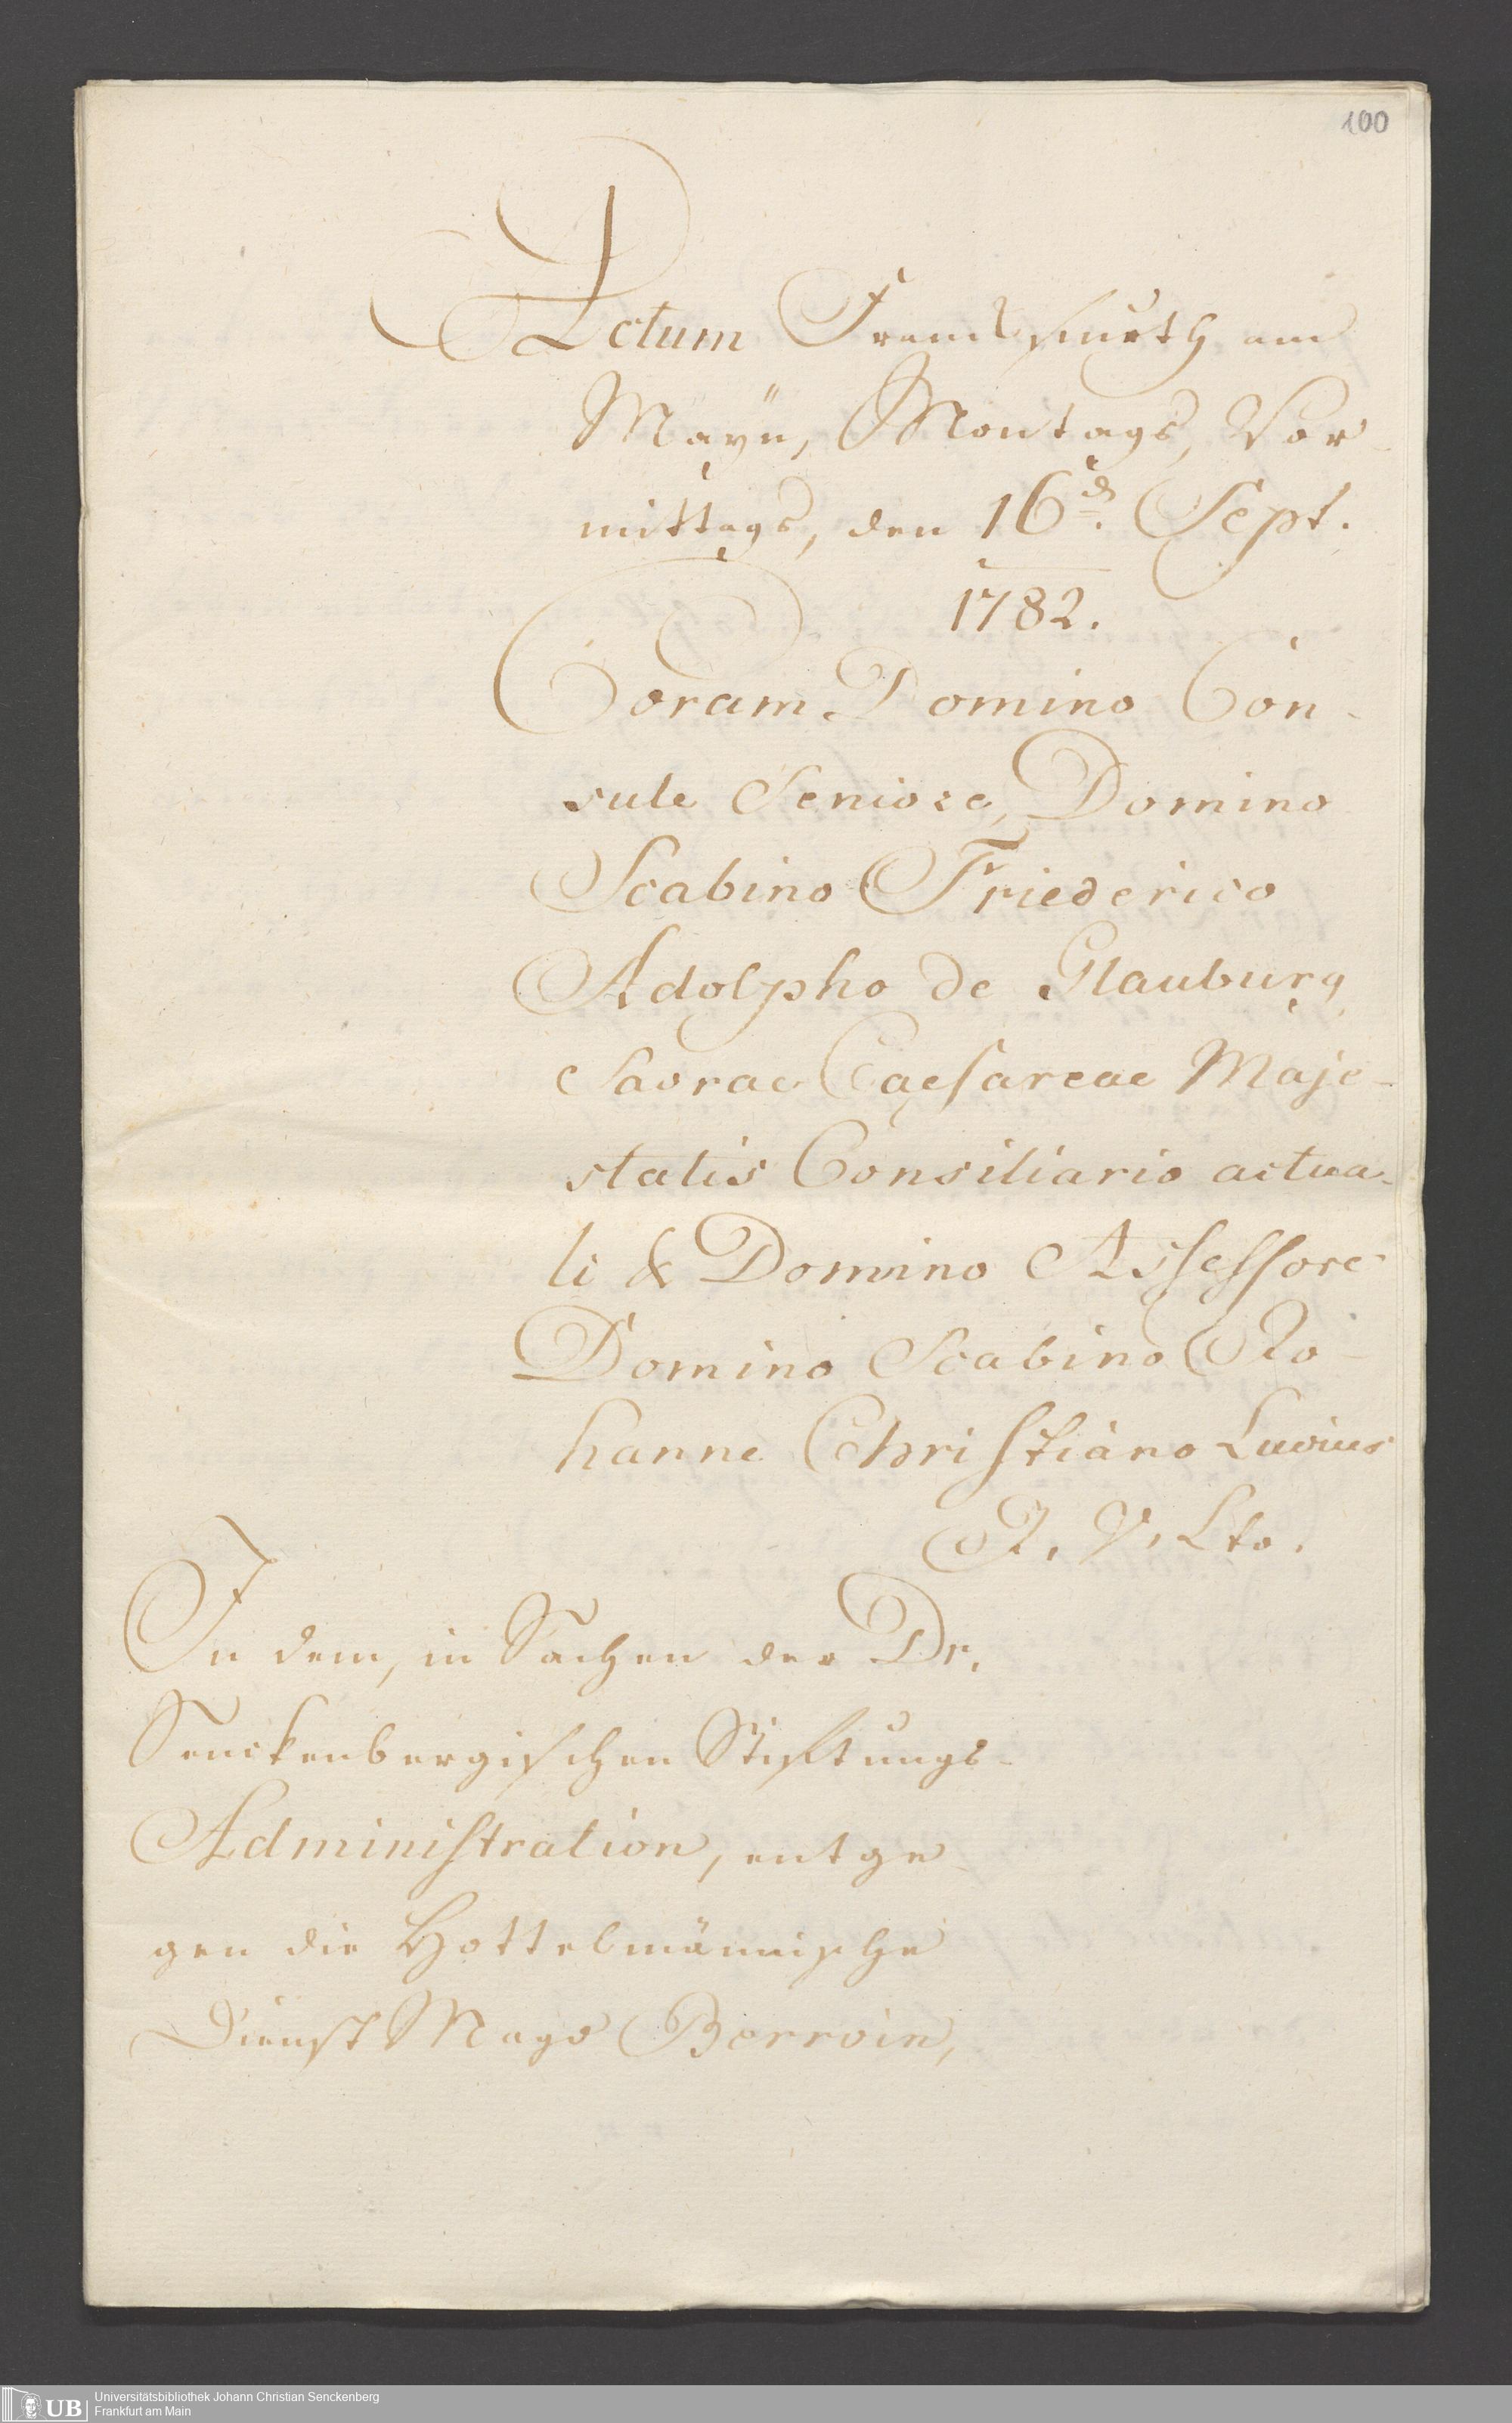 100
Actum Franckfurth am
Mayn, Montags, Vor-
mittags, den 16.d Sept.
1782.
Coram Domino Con-
sule Seniore, Domino
Scabino Friederico
Adolpho de Glauburg
Sacrae Caesareae Maje-
statis Consiliario actua-
li & Domino Assessore
Domino Scabino Jo-
hanne Christiano Lucius
J. V. Lto.
In dem, in Sachen der Dr.
Senckenbergischen Stiftungs-
Administration, entge-
gen die Hottelmännische
Dienst Magd Berroin,
UB
Universitätsbibliothek Johann Christian Senckenberg
Frankfurt am Main